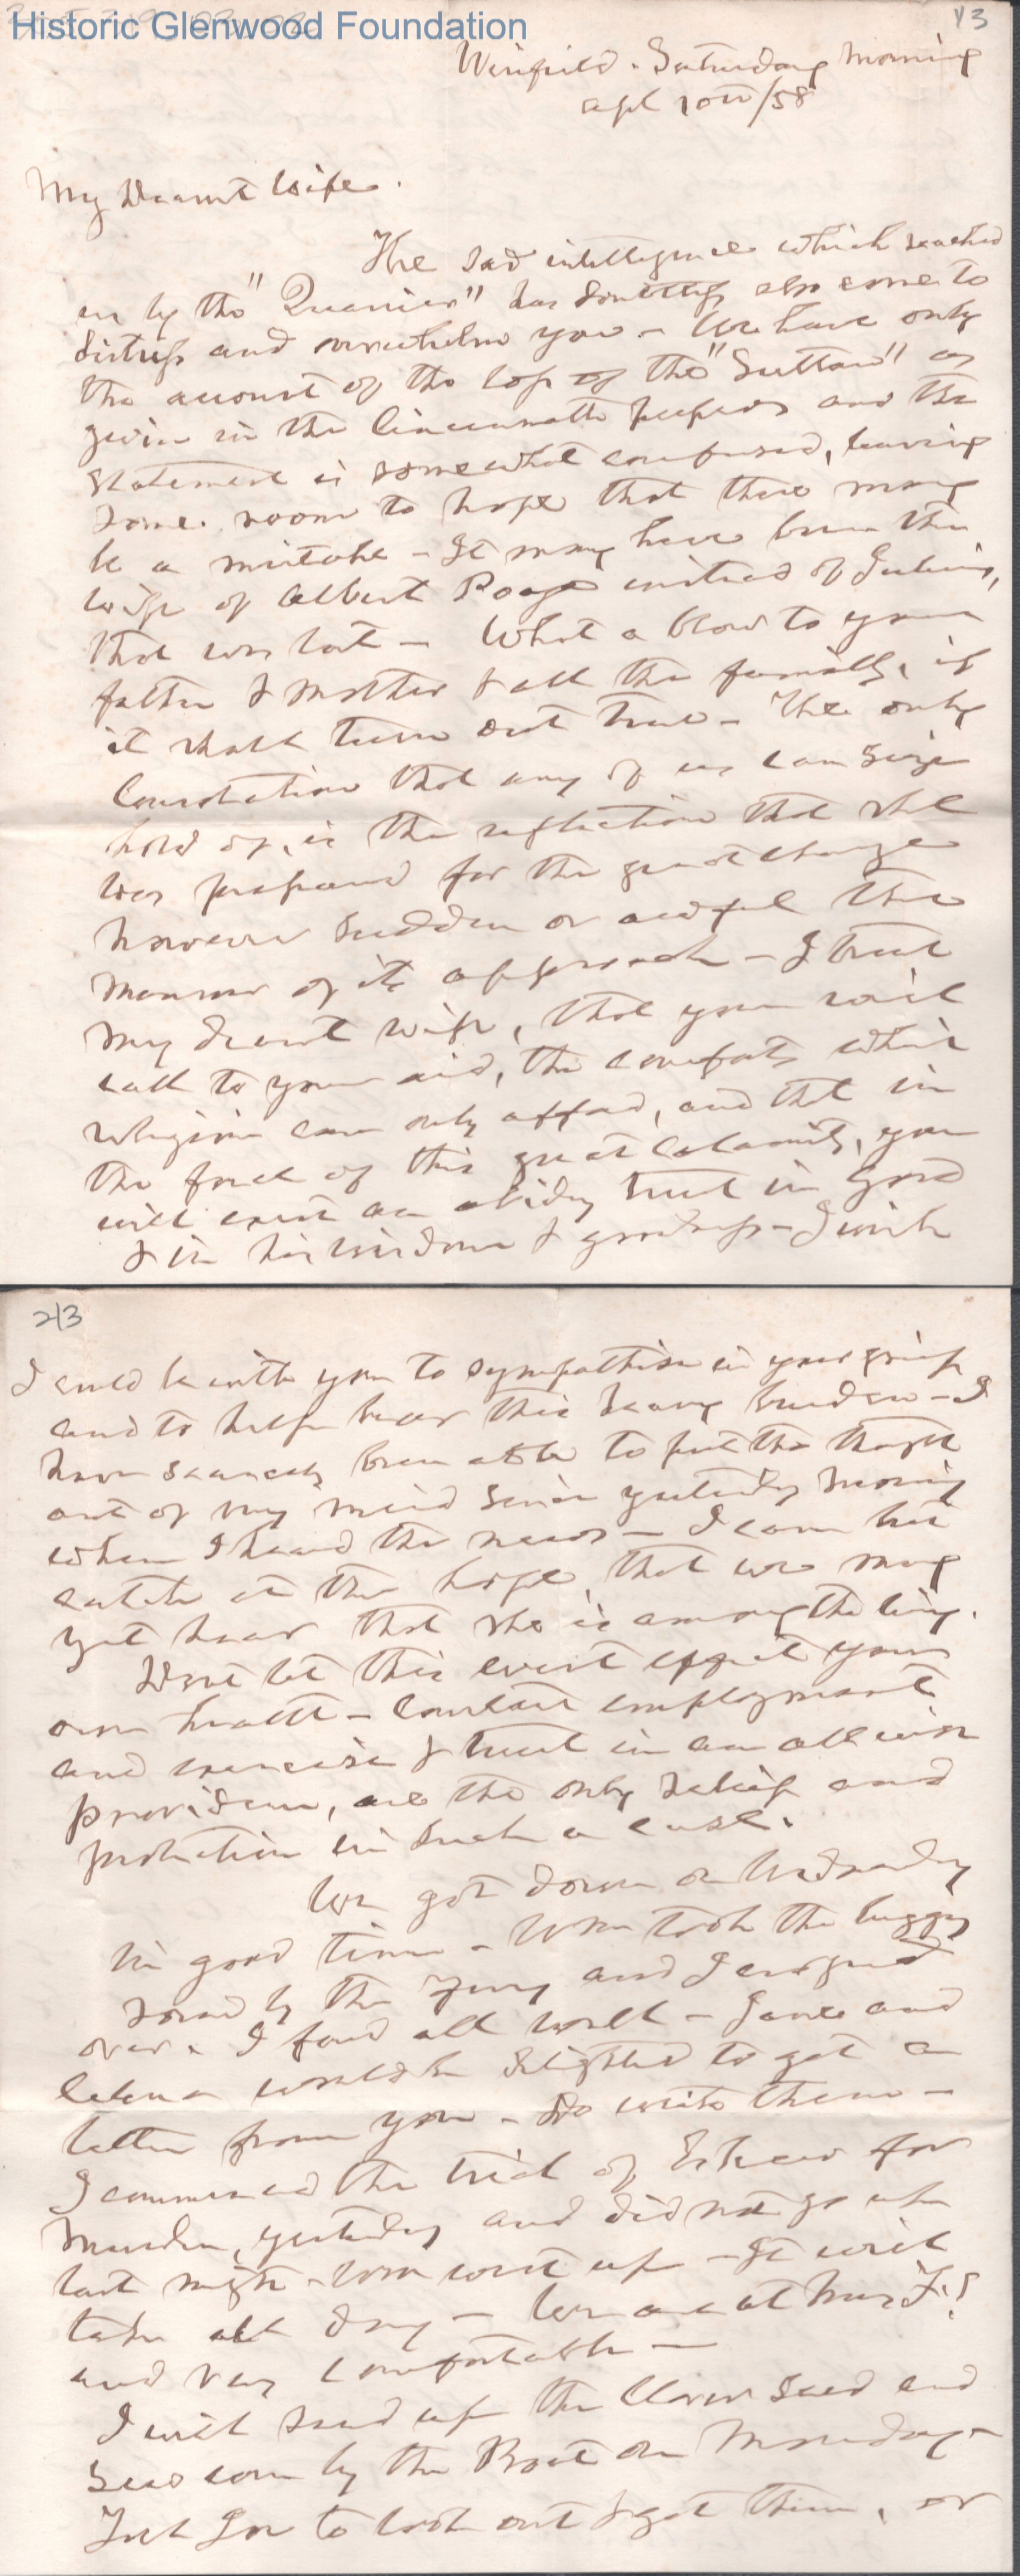 Historic Glenwood Foundation
1/3
Winfield. Saturday Morning
apl 10th/58
My Dearest Wife.
The sad intelligence which reached
us by the "Quarrier" has doubtless also come to
distress and overwhelm you - We have only
the account of the loss of the "Sutton" as
given in the Cincinnatti papers and the
statement is somewhat confused, leaving
some room to hope that there may
be a mistake - It may have been the
wife of Albert Poage instead of Julius,
that was lost - What a blow to your
father & mother & all the family, if
it shall turn out true - The only
Consolation that any of us can seize
hold of, is the reflection that she
was prepared for the great change
however sudden or awful the
manner of its approach - I trust
my dearest wife, that you will
call to your aid, the comforts which
religion can only afford, and that in
the face of this great calamity, you
will exert an abiding trust in God
& in his wisdom & goodness - I wish
2/3
I could be with you to sympathise in your grief
and to help bear this heavy burden - I
have scarcely been able to put the thought
out of my mind since yesterday morning
when I heard the news - I can but
catch at the hope, that we may
yet hear that she is among the living.
Dont let this event affect your
own health - Constant employment
and exercise & trust in an all wise
providence, are the only relief and
protection in such a case.
We got down on Wednesday
in good time - Wm took the buggy
round by the ferry and I crossed
over. I found all well - Jane and
Lelena would be delighted to get a
letter from you - Do write them -
I commenced the trial of for
Murder, yesterday and did not go up
last night - Wm went up - It will
take all day - We are at Mrs F.'s
and very comfortable -
I will send up the Clover seed and
seed corn by the Boat on Monday -
Tell Joe to look out & get them, or